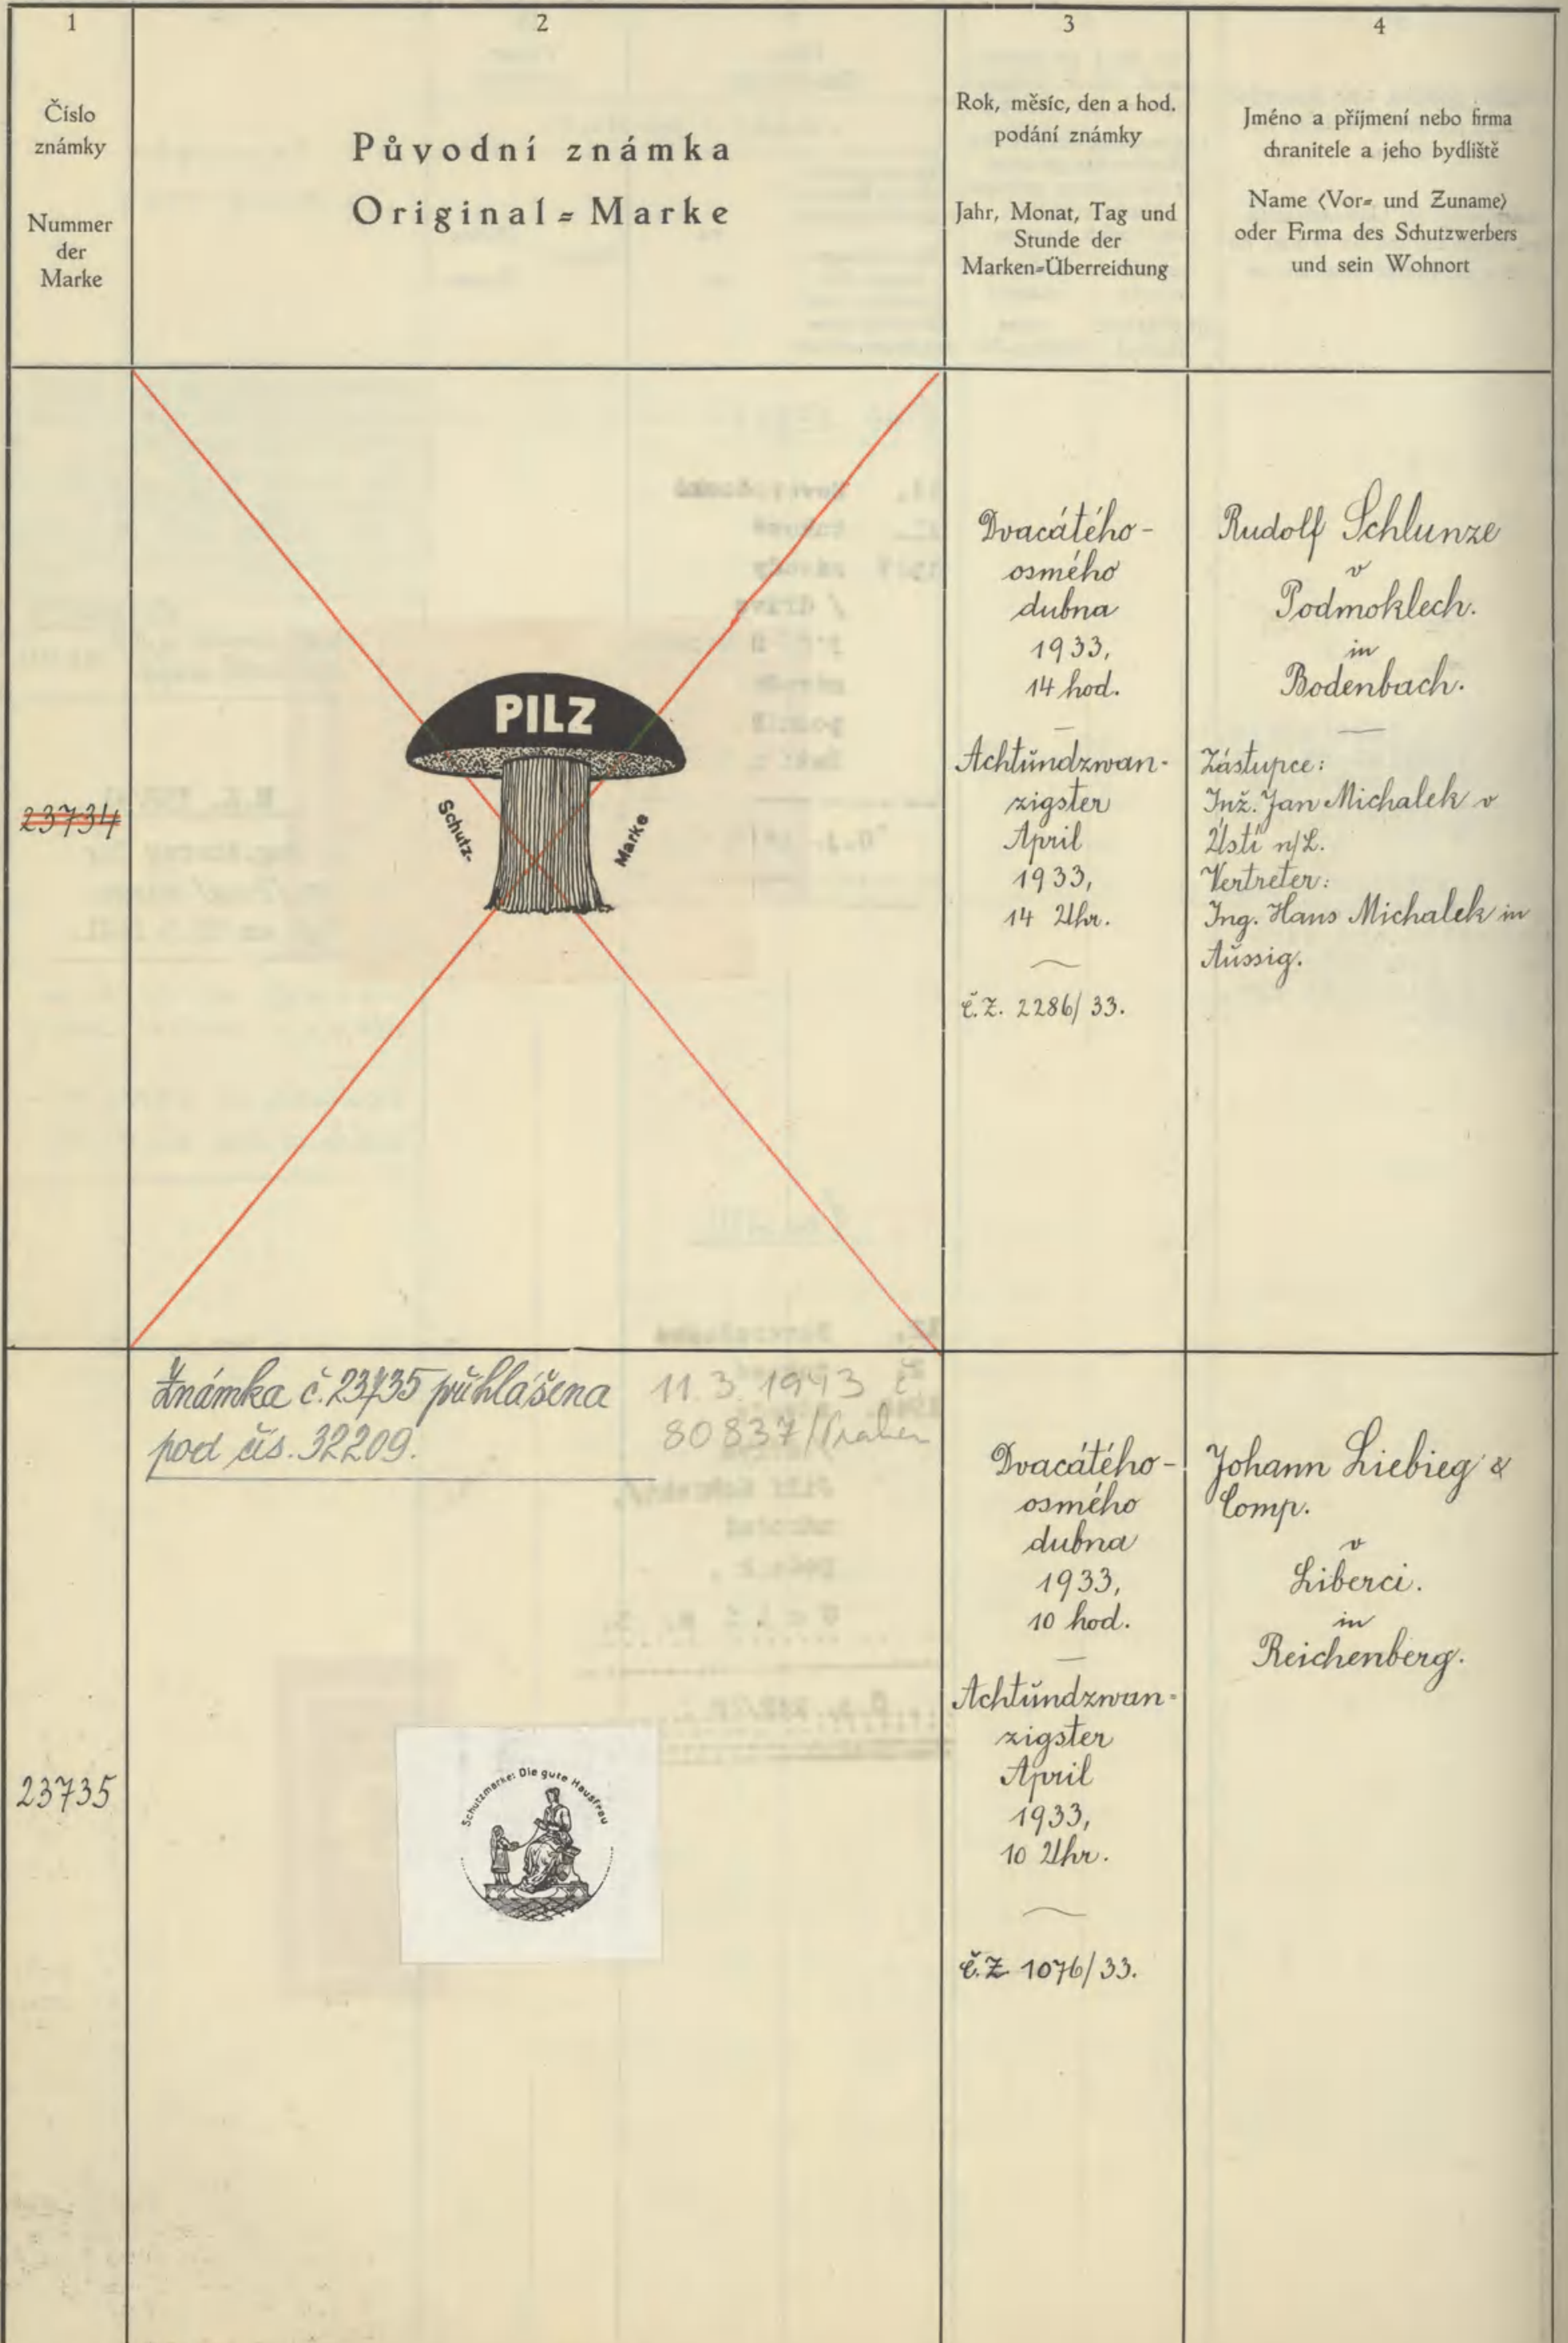 1
Číslo
známky
Nummer
der
Marke
2
Původní známka
Original=Marke
3
Rok, měsíc, den a hod.
podání známky
Jahr, Monat, Tag und
Stunde der
Marken=Überreichung
4
Jméno a příjmení nebo firma
chranitele a jeho bydliště
Name (Vor= und Zuname)
oder Firma des Schutzwerbers
und sein Wohnort
23734
PILZ
Schutz-
Marke
Dvacátého-
osmého
dubna
1933,
14 hod.
Achtundzwan-
zigster
April
1933,
14 Uhr.
č.Z. 2286/33.
Rudolf Schlunze
v
Podmoklech.
in
Bodenbach.
Zástupce:
Inž. Jan Michalek v
Ústí n/L.
Vertreter:
Ing. Hans Michalek in
Aussig.
Známka č. 23735 přihlášena
pod čís. 32209.
11.3.1943
80837/
23735
Schutzmarke: Die gute Hausfrau
Dvacátého-
osmého
dubna
1933,
10 hod.
Achtundzwan-
zigster
April
1933,
10 Uhr.
č.Z 1076/33.
Johann Liebieg &
Comp.
v
Liberci.
in
Reichenberg.